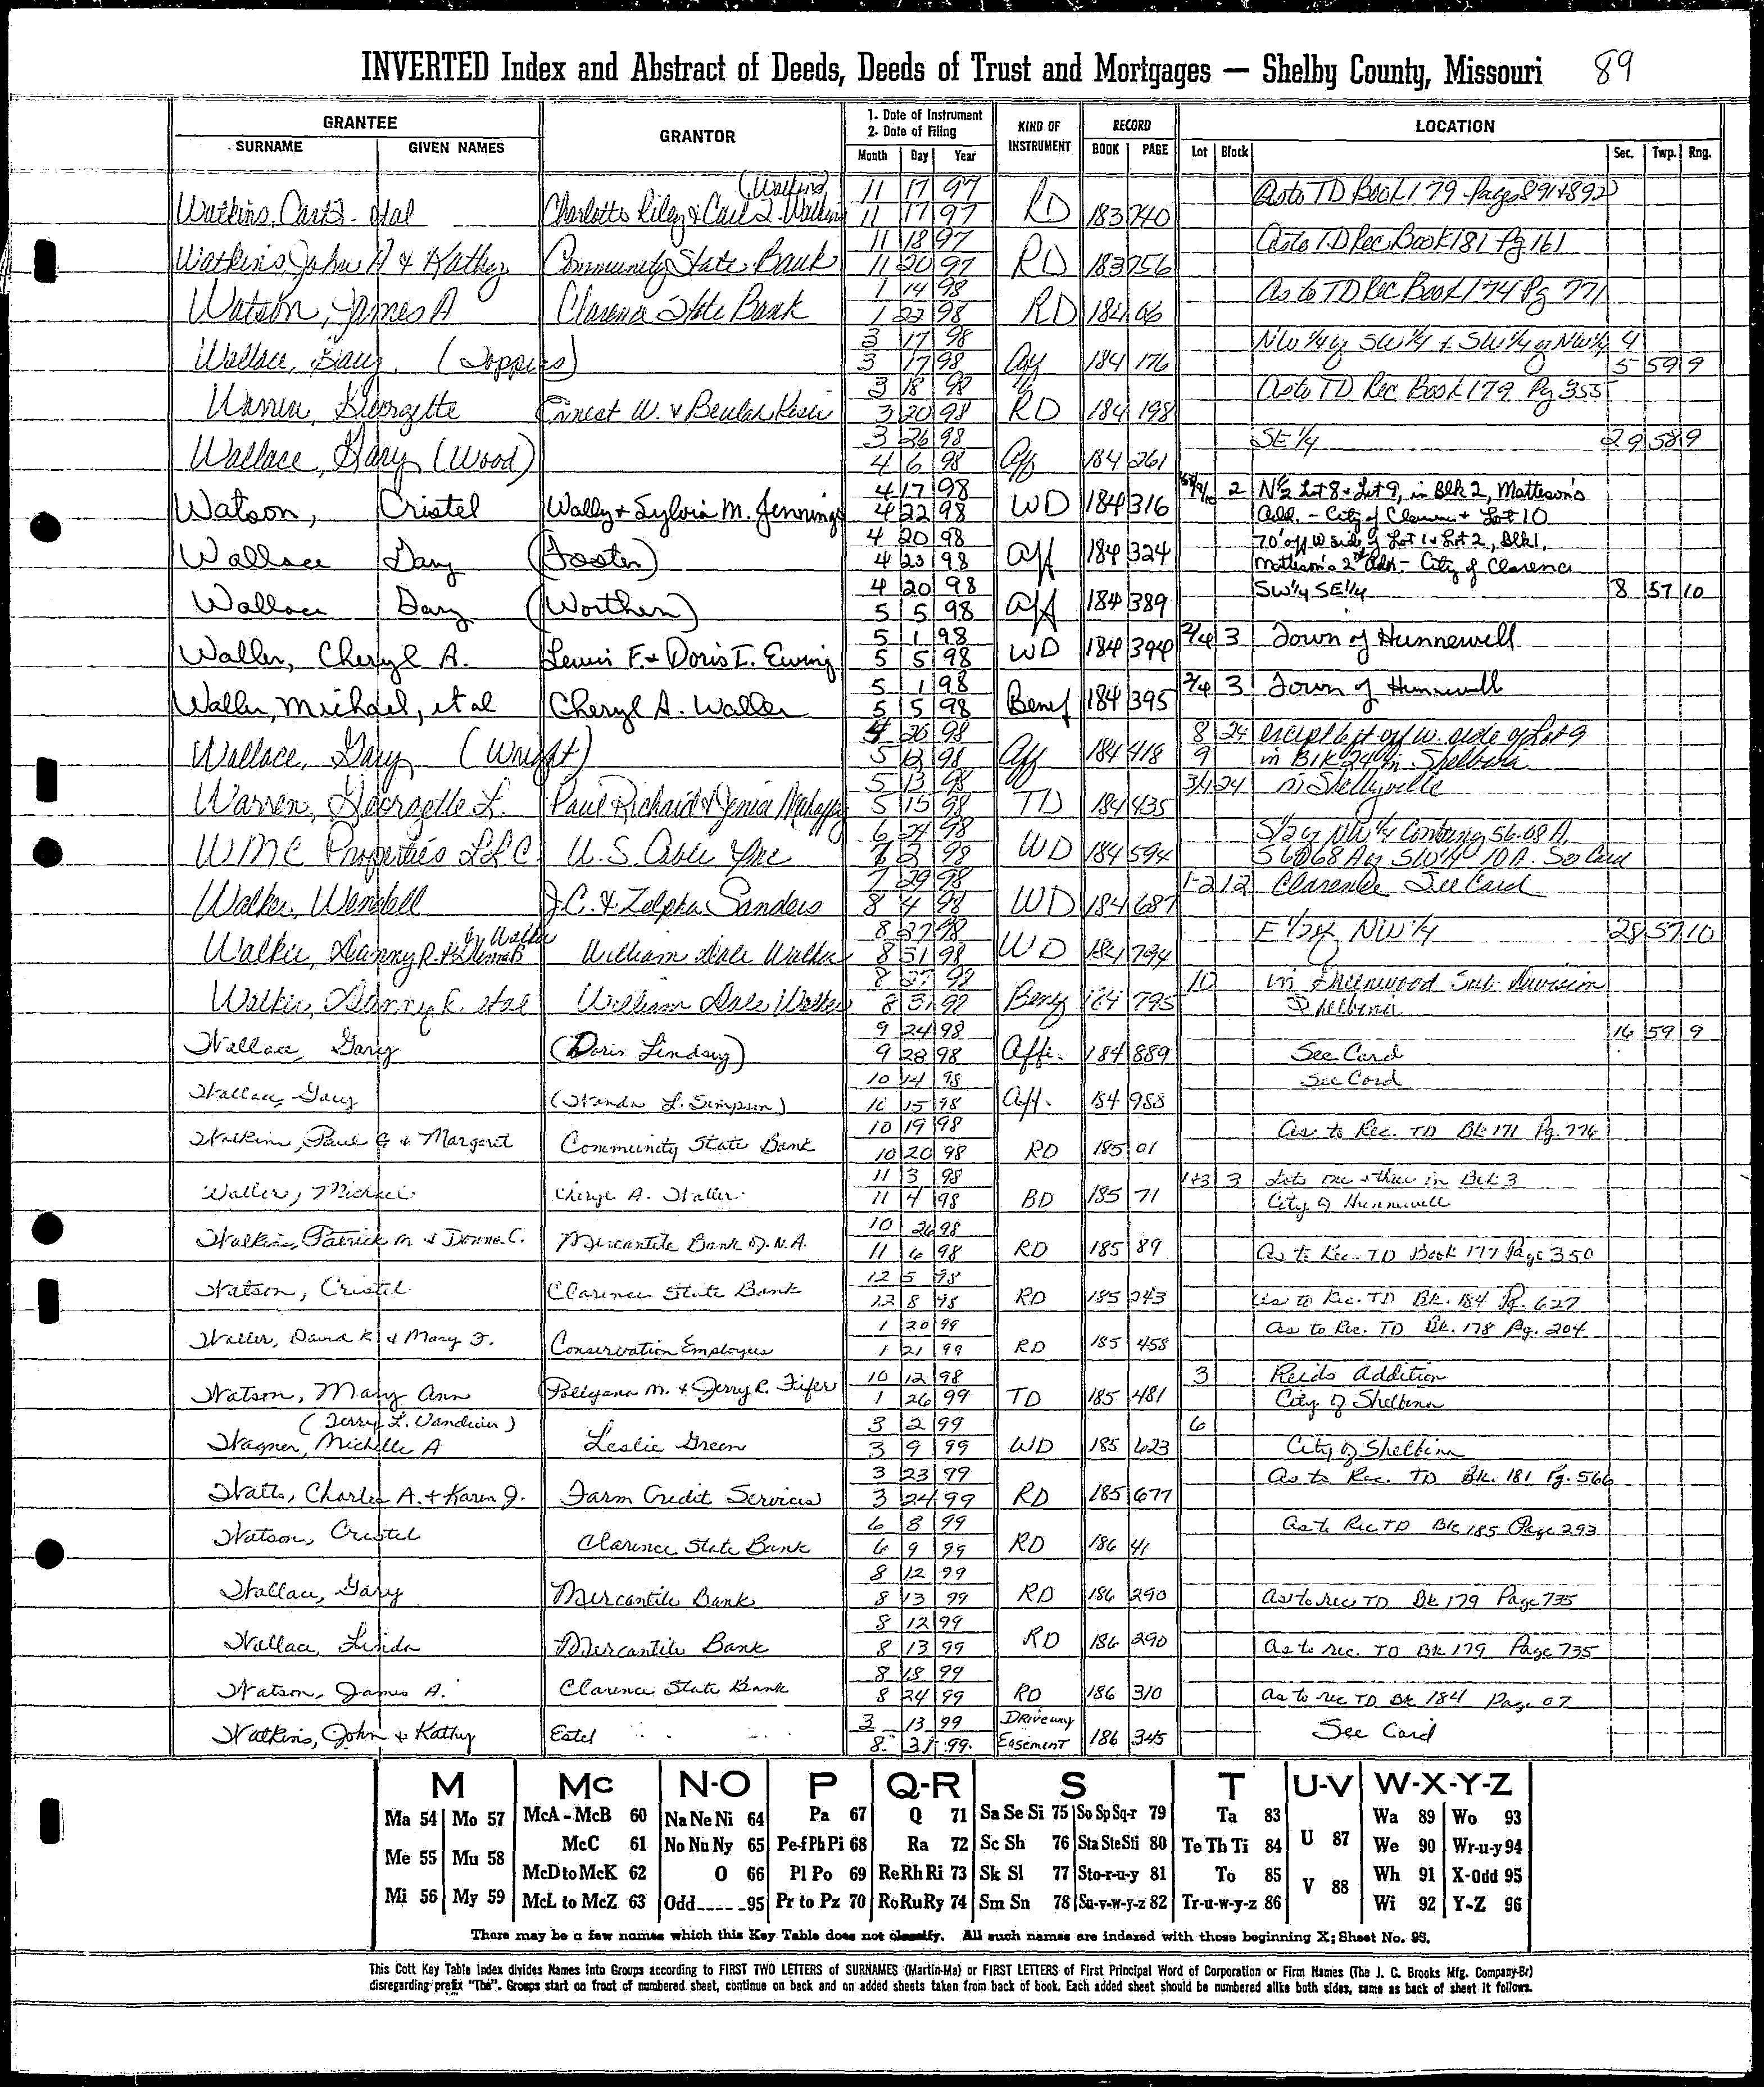 INVERTED Index and Abstract of Deeds, Deeds of Trust and Mortgages — Shelby County, Missouri 89
GRANTEE GRANTOR 1. Date of Instrument 2. Date of Filing KIND OF INSTRUMENT RECORD LOCATION
SURNAME GIVEN NAMES Month Day Year BOOK PAGE Lot Block Sec. Twp. Rng.
(Watkins) 11 17 97 As to TD Book 179 Pages 891+892
Watkins, Carl L. etal Charlotte Riley & Carl L. Watkins 11 17 97 RD 183 740
11 18 97 As to TD Rec Book 181 Pg 161
Watkins John A & Kathy Community State Bank 11 20 97 RD 183 756
1 14 98 As to TD Rec Book 174 Pg 771
Watson, James A Clarence State Bank 1 22 98 RD 184 06
3 17 98 NW 1/4 of SW 1/4 & SW 1/4 of NW 1/4 4
Wallace, Gary, (Toppics) 3 17 98 Aff 184 176 5 59 9
3 18 98 As to TD Rec Book 179 Pg 355
Warren, Georgette Ernest W. & Beulah 3 20 98 RD 184 198
3 26 98 SE 1/4 29 58 9
Wallace, Gary (Wood) 4 6 98 Aff 184 261
4 17 98 2 N 1/2 Lot 8 & Lot 9, in Blk 2, Matteson's
Watson, Cristel Wally & Sylvia M. Jennings 4 22 98 WD 184 316 Add. - City of Clarence & Lot 10
4 20 98 70' off W side of Lot 1 & Lot 2, Blk 1,
Wallace Gary (Foster) 4 23 98 Aff 184 324 Matteson's 2nd Add - City of Clarence
4 20 98 SW 1/4 SE 1/4 8 57 10
Wallace Gary (Worthen) 5 5 98 Aff 184 389
5 1 98 3 Town of Hunnewell
Waller, Cheryl A. Lewis F. & Doris I. Ewing 5 5 98 WD 184 394
5 1 98 3 Town of Hunnewell
Waller, Michael, et al Cheryl A. Waller 5 5 98 Benef 184 395
4 20 98 8 24 except 6 ft off w. side of Lot 9
Wallace, Gary (Wright) 5 13 98 Aff 184 418 9 in Blk 24 in Shelbina
5 13 98 3/4 24 in Shelbyville
Warren, Georgette L. Paul Richard & Jenia Mahaffey 5 15 98 TD 184 435
6 24 98 S 1/2 of NW 1/4 Containing 56.08 A,
WMC Properties LLC U.S. Cable Inc 7 2 98 WD 184 594 SW 1/4 10 A. See Card
7 29 98 1-2 12 Clarence See Card
Walker, Wendell J.C. & Zelpha Sanders 8 4 98 WD 184 687
Walker 8 27 98 E 1/2 of NW 1/4 28 57 10
Walker, Danny R. & Glenna B William Dale Walker 8 31 98 WD 184 794
8 27 98 10 in Greenwood Sub-Division
Walker, Danny R. etal William Dale Walker 8 31 98 Benef 184 795 Shelbina
9 24 98 16 59 9
Wallace, Gary (Doris Lindsey) 9 28 98 Affi. 184 889 See Card
10 14 98 See Card
Wallace, Gary (Wanda L. Simpson) 10 15 98 Aff. 184 988
10 19 98 As to Rec. TD Bk 171 Pg. 776
Watkins, Paul G & Margaret Community State Bank 10 20 98 RD 185 01
11 3 98 1+3 3 Lots one & three in Blk 3
Waller, Michael Cheryl A. Waller 11 4 98 BD 185 71 City of Hunnewell
10 26 98
Watkins, Patrick M & Donna C. Mercantile Bank of N.A. 11 6 98 RD 185 89 As to Rec. TD Book 177 Page 350
12 5 98
Watson, Cristel Clarence State Bank 12 8 98 RD 185 243 As to Rec. TD Bk. 184 Pg. 627
1 20 99 As to Rec. TD Bk. 178 Pg. 204
Waller, David K & Mary J. Conservation Employees 1 21 99 RD 185 458
10 12 98 3 Reids Addition
Watson, Mary Ann Pollyann M. & Jerry R. Fifer 1 26 99 TD 185 481 City of Shelbina
(Terry L. Vandiver) 3 2 99 6
Wagner, Michelle A Leslie Green 3 9 99 WD 185 623 City of Shelbina
3 23 99 As to Rec. TD Bk. 181 Pg. 566
Watts, Charles A. & Karen J. Farm Credit Services 3 24 99 RD 185 677
6 8 99 As to Rec TD Bk 185 Page 293
Watson, Cristel Clarence State Bank 6 9 99 RD 186 41
8 12 99
Wallace, Gary Mercantile Bank 8 13 99 RD 186 290 As to rec TD Bk 179 Page 735
8 12 99
Wallace, Linda Mercantile Bank 8 13 99 RD 186 290 As to rec. TD Bk 179 Page 735
8 18 99
Watson, James A. Clarence State Bank 8 24 99 RD 186 310 As to rec TD Bk 184 Page 07
3 13 99 Driveway
Watkins, John & Kathy Estel 8 31 99 Easement 186 345 See Card
M Mc N-O P Q-R S T U-V W-X-Y-Z
Ma 54 Mo 57 McA - McB 60 Na Ne Ni 64 Pa 67 Q 71 Sa Se Si 75 So Sp Sq-r 79 Ta 83 U 87 Wa 89 Wo 93
Me 55 Mu 58 McC 61 No Nu Ny 65 Pe-f Ph Pi 68 Ra 72 Sc Sh 76 Sta Ste Sti 80 Te Th Ti 84 We 90 Wr-u-y 94
McD to McK 62 O 66 Pl Po 69 Re Rh Ri 73 Sk Sl 77 Sto-r-u-y 81 To 85 V 88 Wh 91 X-Odd 95
Mi 56 My 59 McL to McZ 63 Odd 95 Pr to Pz 70 Ro Ru Ry 74 Sm Sn 78 Su-v-w-y-z 82 Tr-u-w-y-z 86 Wi 92 Y-Z 96
There may be a few names which this Key Table does not classify. All such names are indexed with those beginning X; Sheet No. 95.
This Cott Key Table Index divides Names into Groups according to FIRST TWO LETTERS of SURNAMES (Martin-Ma) or FIRST LETTERS of First Principal Word of Corporation or Firm Names (The J. C. Brooks Mfg. Company-Br)
disregarding prefix "The". Groups start on front of numbered sheet, continue on back and on added sheets taken from back of book. Each added sheet should be numbered alike both sides, same as back of sheet it follows.